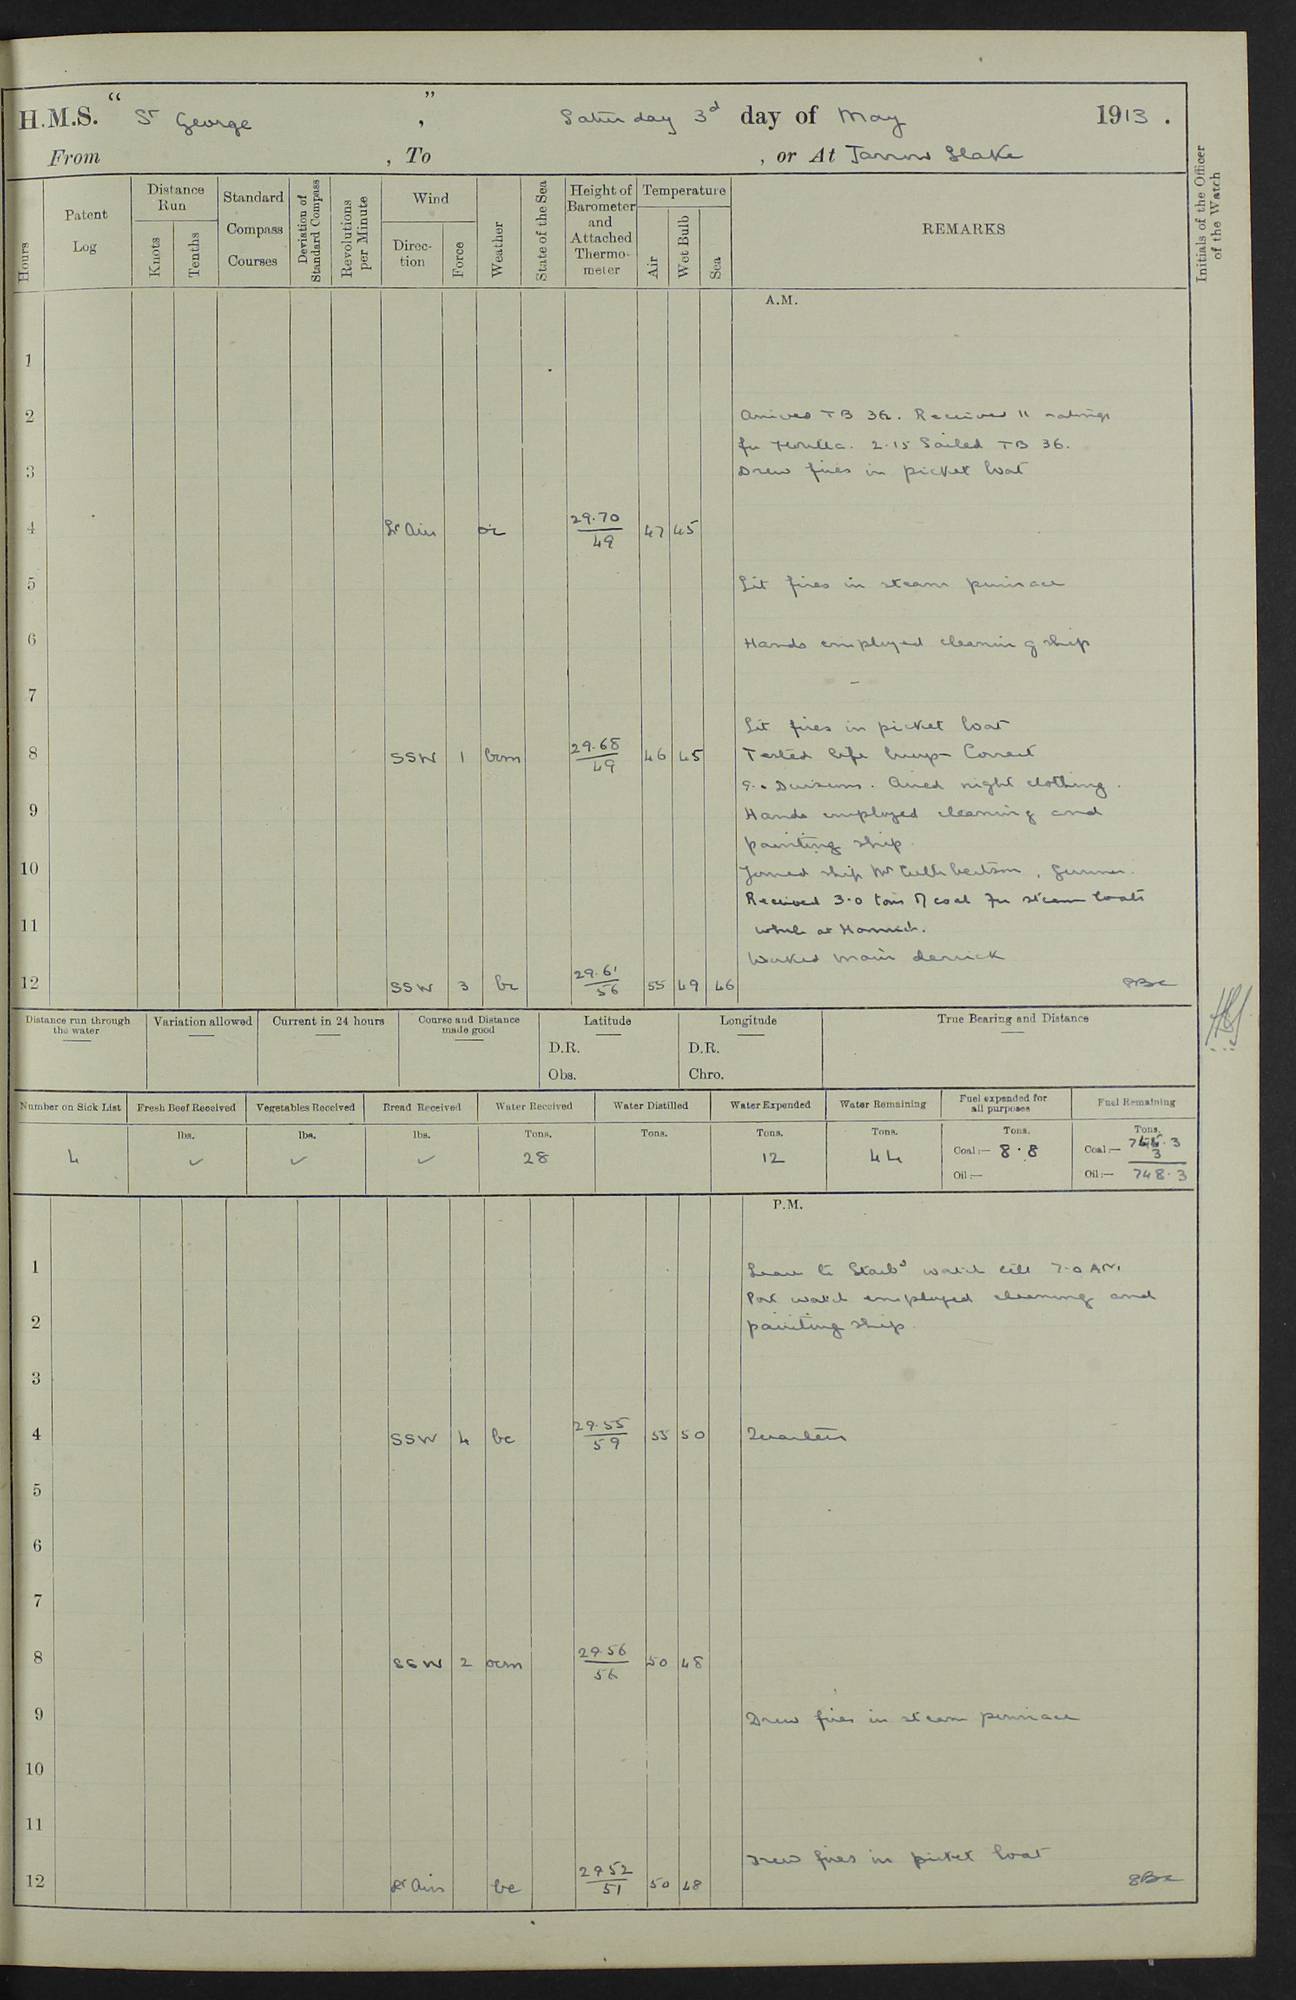 H.M.S. “ St George ” , Saturday 3d day of May 1913 .
From , To , or At Jarrow Slake
Hours
Patent Log
Distance Run
Knots
Tenths
Standard Compass Courses
Deviation of Standard Compass
Revolutions per Minute
Wind
Direc-tion
Force
Weather
State of the Sea
Height of Barometer and Attached Thermo-meter
Temperature
Air
Wet Bulb
Sea
REMARKS
Initials of the Officer of the Watch
A.M.
1
2 Arrived TB 36. Received 11 ratings
for 2.15 Sailed TB 36.
3 Drew fires in picket boat
4 Lt Airs 29.70 / 49 47 45
5 Lit fires in steam pinnace
6 Hands employed cleaning ship
7
Lit fires in picket boat
8 SSW 1 bcm 29.68 / 49 46 45 Tested life buoys Correct
9.0 Divisions. Aired night clothing.
9 Hands employed cleaning and
painting ship.
10 Joined ship Mr Cuthbertson, Gunner.
Received 3.0 tons of coal for steam boats
11 while at Harwich.
Worked main derrick
12 SSW 3 bc 29.61 / 56 55 49 46
Distance run through the water
Variation allowed
Current in 24 hours
Course and Distance made good
Latitude
D.R.
Obs.
Longitude
D.R.
Chro.
True Bearing and Distance
Number on Sick List
Fresh Beef Received
Vegetables Received
Bread Received
Water Received
Water Distilled
Water Expended
Water Remaining
Fuel expended for all purposes
Fuel Remaining
lbs. lbs. lbs. Tons. Tons. Tons. Tons. Tons. Tons.
4 ✓ ✓ ✓ 28 12 44 Coal:— 8.8 Coal:— .3
3
Oil:— Oil:— 748.3
P.M.
1 Leave to Starbd watch till 7.0 AM
Port watch employed cleaning and
2 painting ship.
3
4 SSW 4 bc 29.55 / 59 55 50 Quarters
5
6
7
8 SSW 2 ocm 29.56 / 56 50 48
9 Drew fires in steam pinnace
10
11
Drew fires in picket boat
12 Lt Airs bc 29.52 / 51 50 48